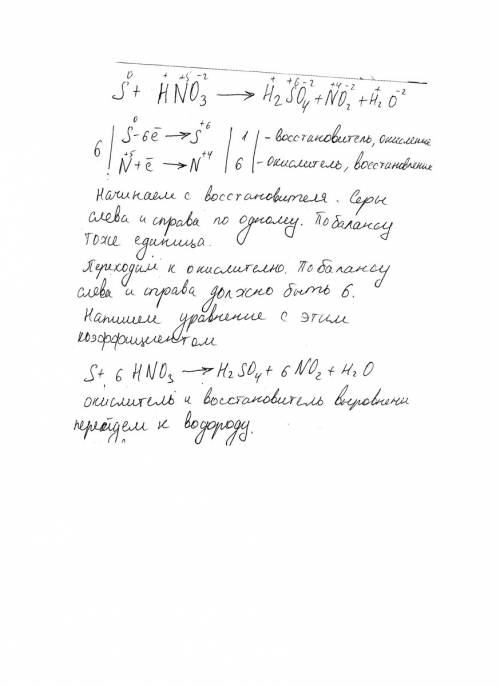 S⁰ + H⁺N⁺⁵O₃⁻² ⟶ H₂⁺S⁺⁶O₄⁻² + N⁺⁴O₂⁻² + H₂⁺O⁻²
6 | S⁰ - 6ē ⟶ S⁺⁶ | 1 | - восстановитель, окисление
N⁺⁵ + ē ⟶ N⁺⁴ | 6 | - окислитель, восстановление
Начинаем с восстановителя. Серы
слева и справа по одному. По балансу
тоже единица.
Переходим к окислителю. По балансу
слева и справа должно быть 6.
Напишем уравнение с этим
коэффициентом
S + 6 HNO₃ ⟶ H₂SO₄ + 6 NO₂ + H₂O
окислитель и восстановитель выровнены
перейдем к водороду.